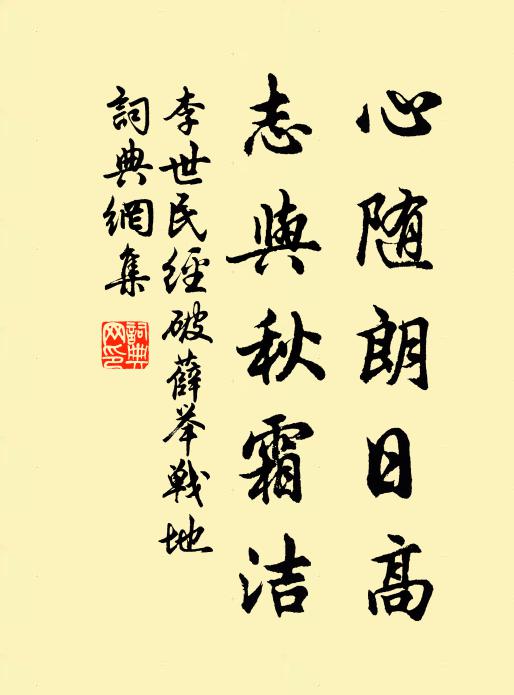 心随朗日高
志與秋霜洁
李世民經破薛举戰地
詞典網集
詞典網印